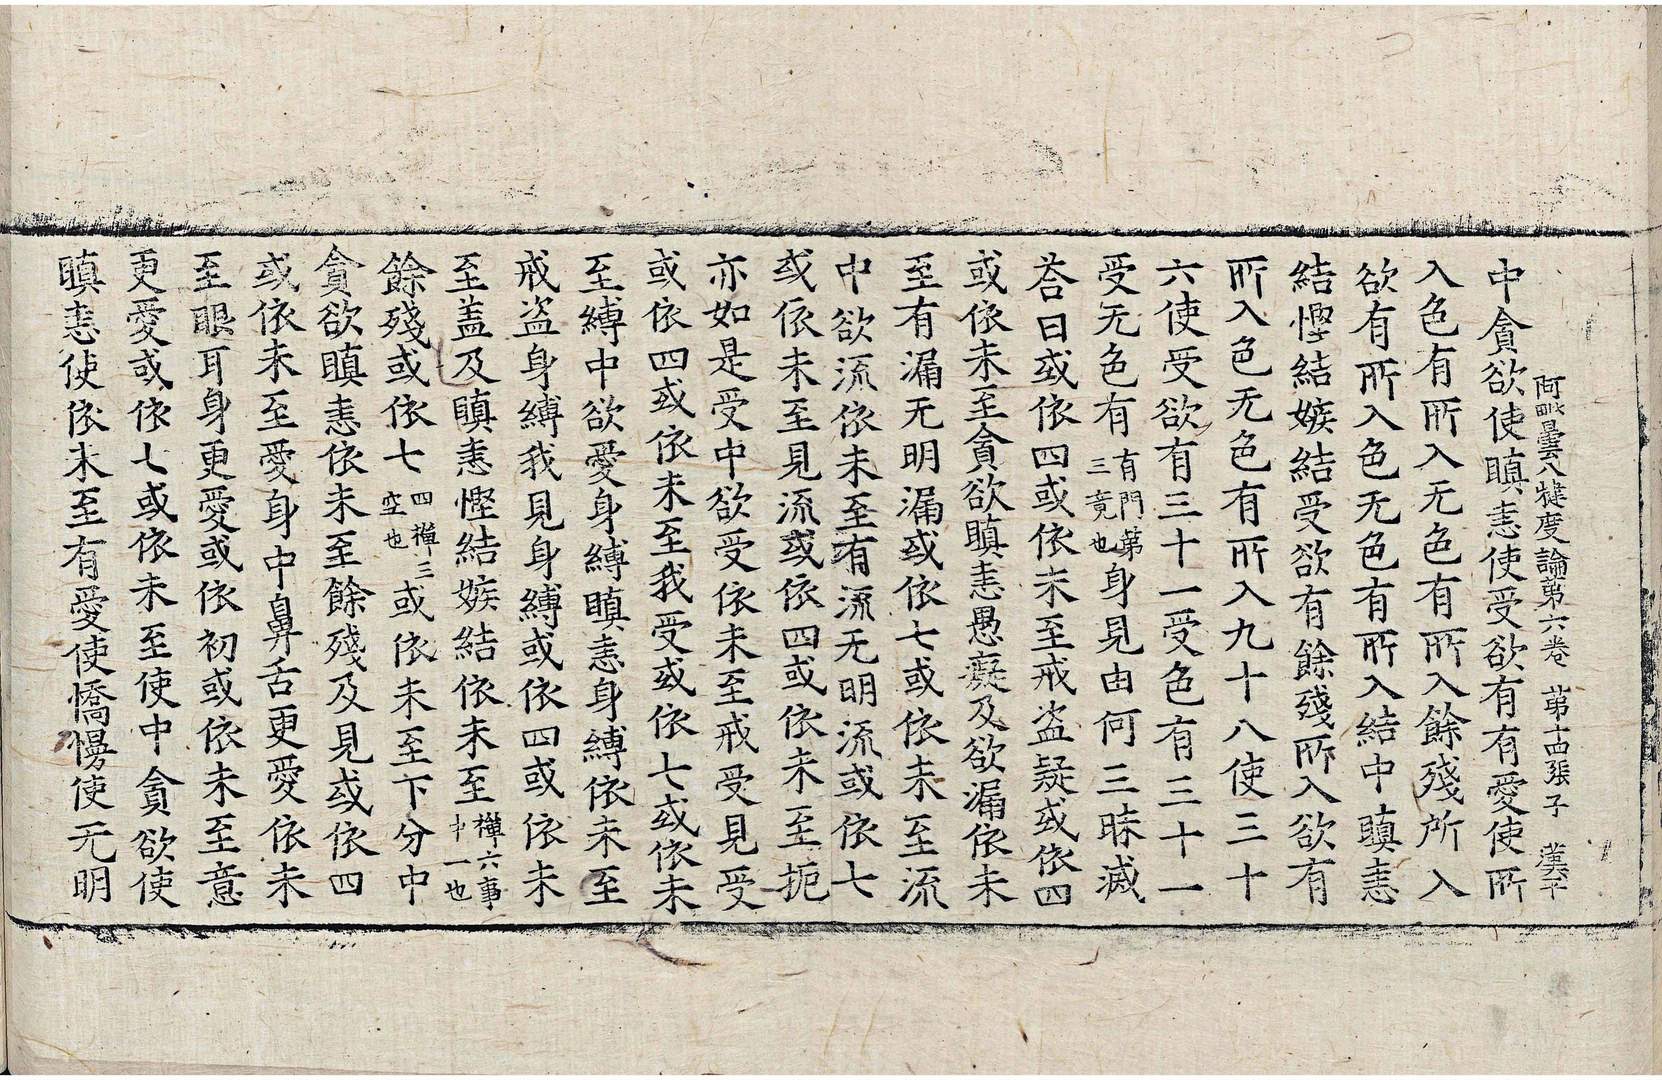 阿毗曇八犍度論苐六卷　苐十四張子　漢子
中貪欲使瞋恚使受欲有有愛使所
入色有所入无色有所入餘殘所入
欲有所入色无色有所入結中瞋恚
結慳結嫉結受欲有餘殘所入欲有
所入色无色有所入九十八使三十
六使受欲有三十一受色有三十一
受无色有有門苐三竟也身見由何三昧滅
荅曰或依四或依未至戒盗疑或依四
或依未至貪欲瞋恚愚癡及欲漏依未
至有漏无明漏或依七或依未至流
中欲流依未至有流无明流或依七
或依未至見流或依四或依未至扼
亦如是受中欲受依未至戒受見受
或依四或依未至我受或依七或依未
至縛中欲愛身縛瞋恚身縛依未至
戒盗身縛我見身縛或依四或依未
至盖及瞋恚慳結嫉結依未至禪六事中一也
餘殘或依七四禪三空也或依未至下分中
貪欲瞋恚依未至餘殘及見或依四
或依未至愛身中鼻舌更愛依未
至眼耳身更愛或依初或依未至意
更愛或依七或依未至使中貪欲使
瞋恚使依未至有愛使憍慢使无明